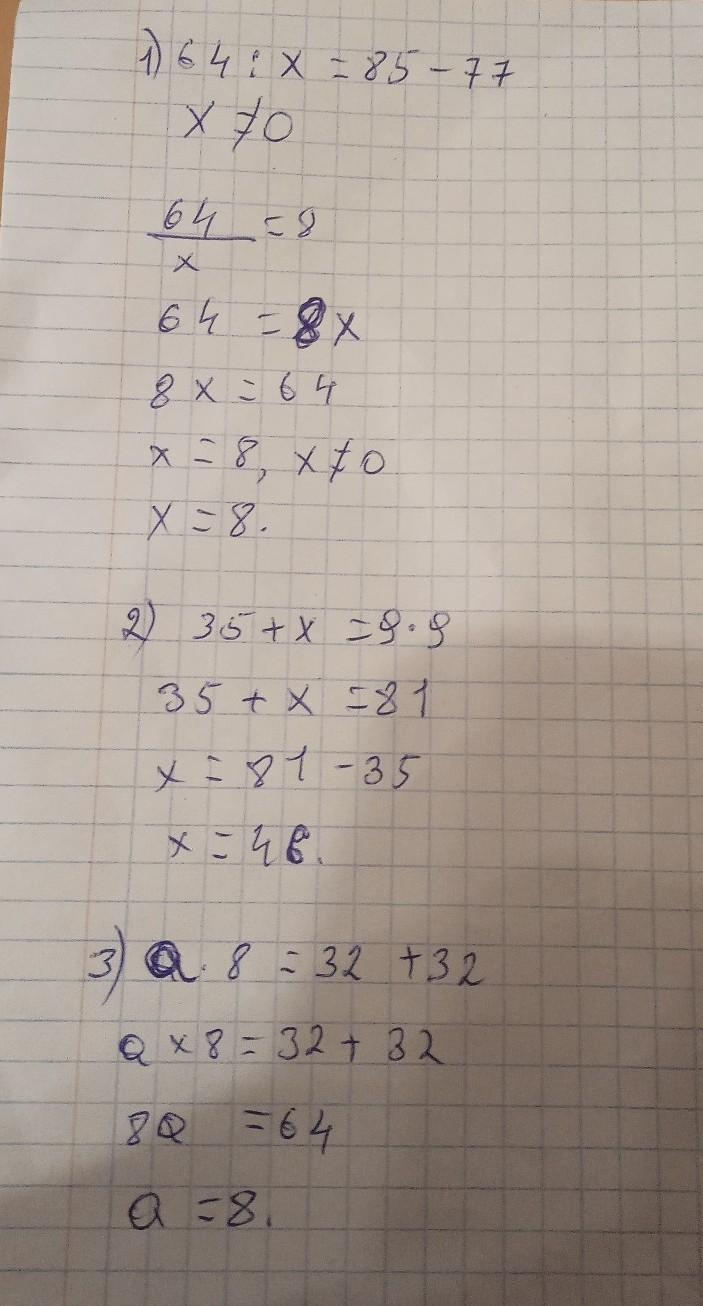 1) 64 : x = 85 - 77
x ≠ 0
64/x = 8
64 = 8x
8x = 64
x = 8, x ≠ 0
x = 8.
2) 35 + x = 9 · 9
35 + x = 81
x = 81 - 35
x = 46.
3) a · 8 = 32 + 32
a × 8 = 32 + 32
8a = 64
a = 8.